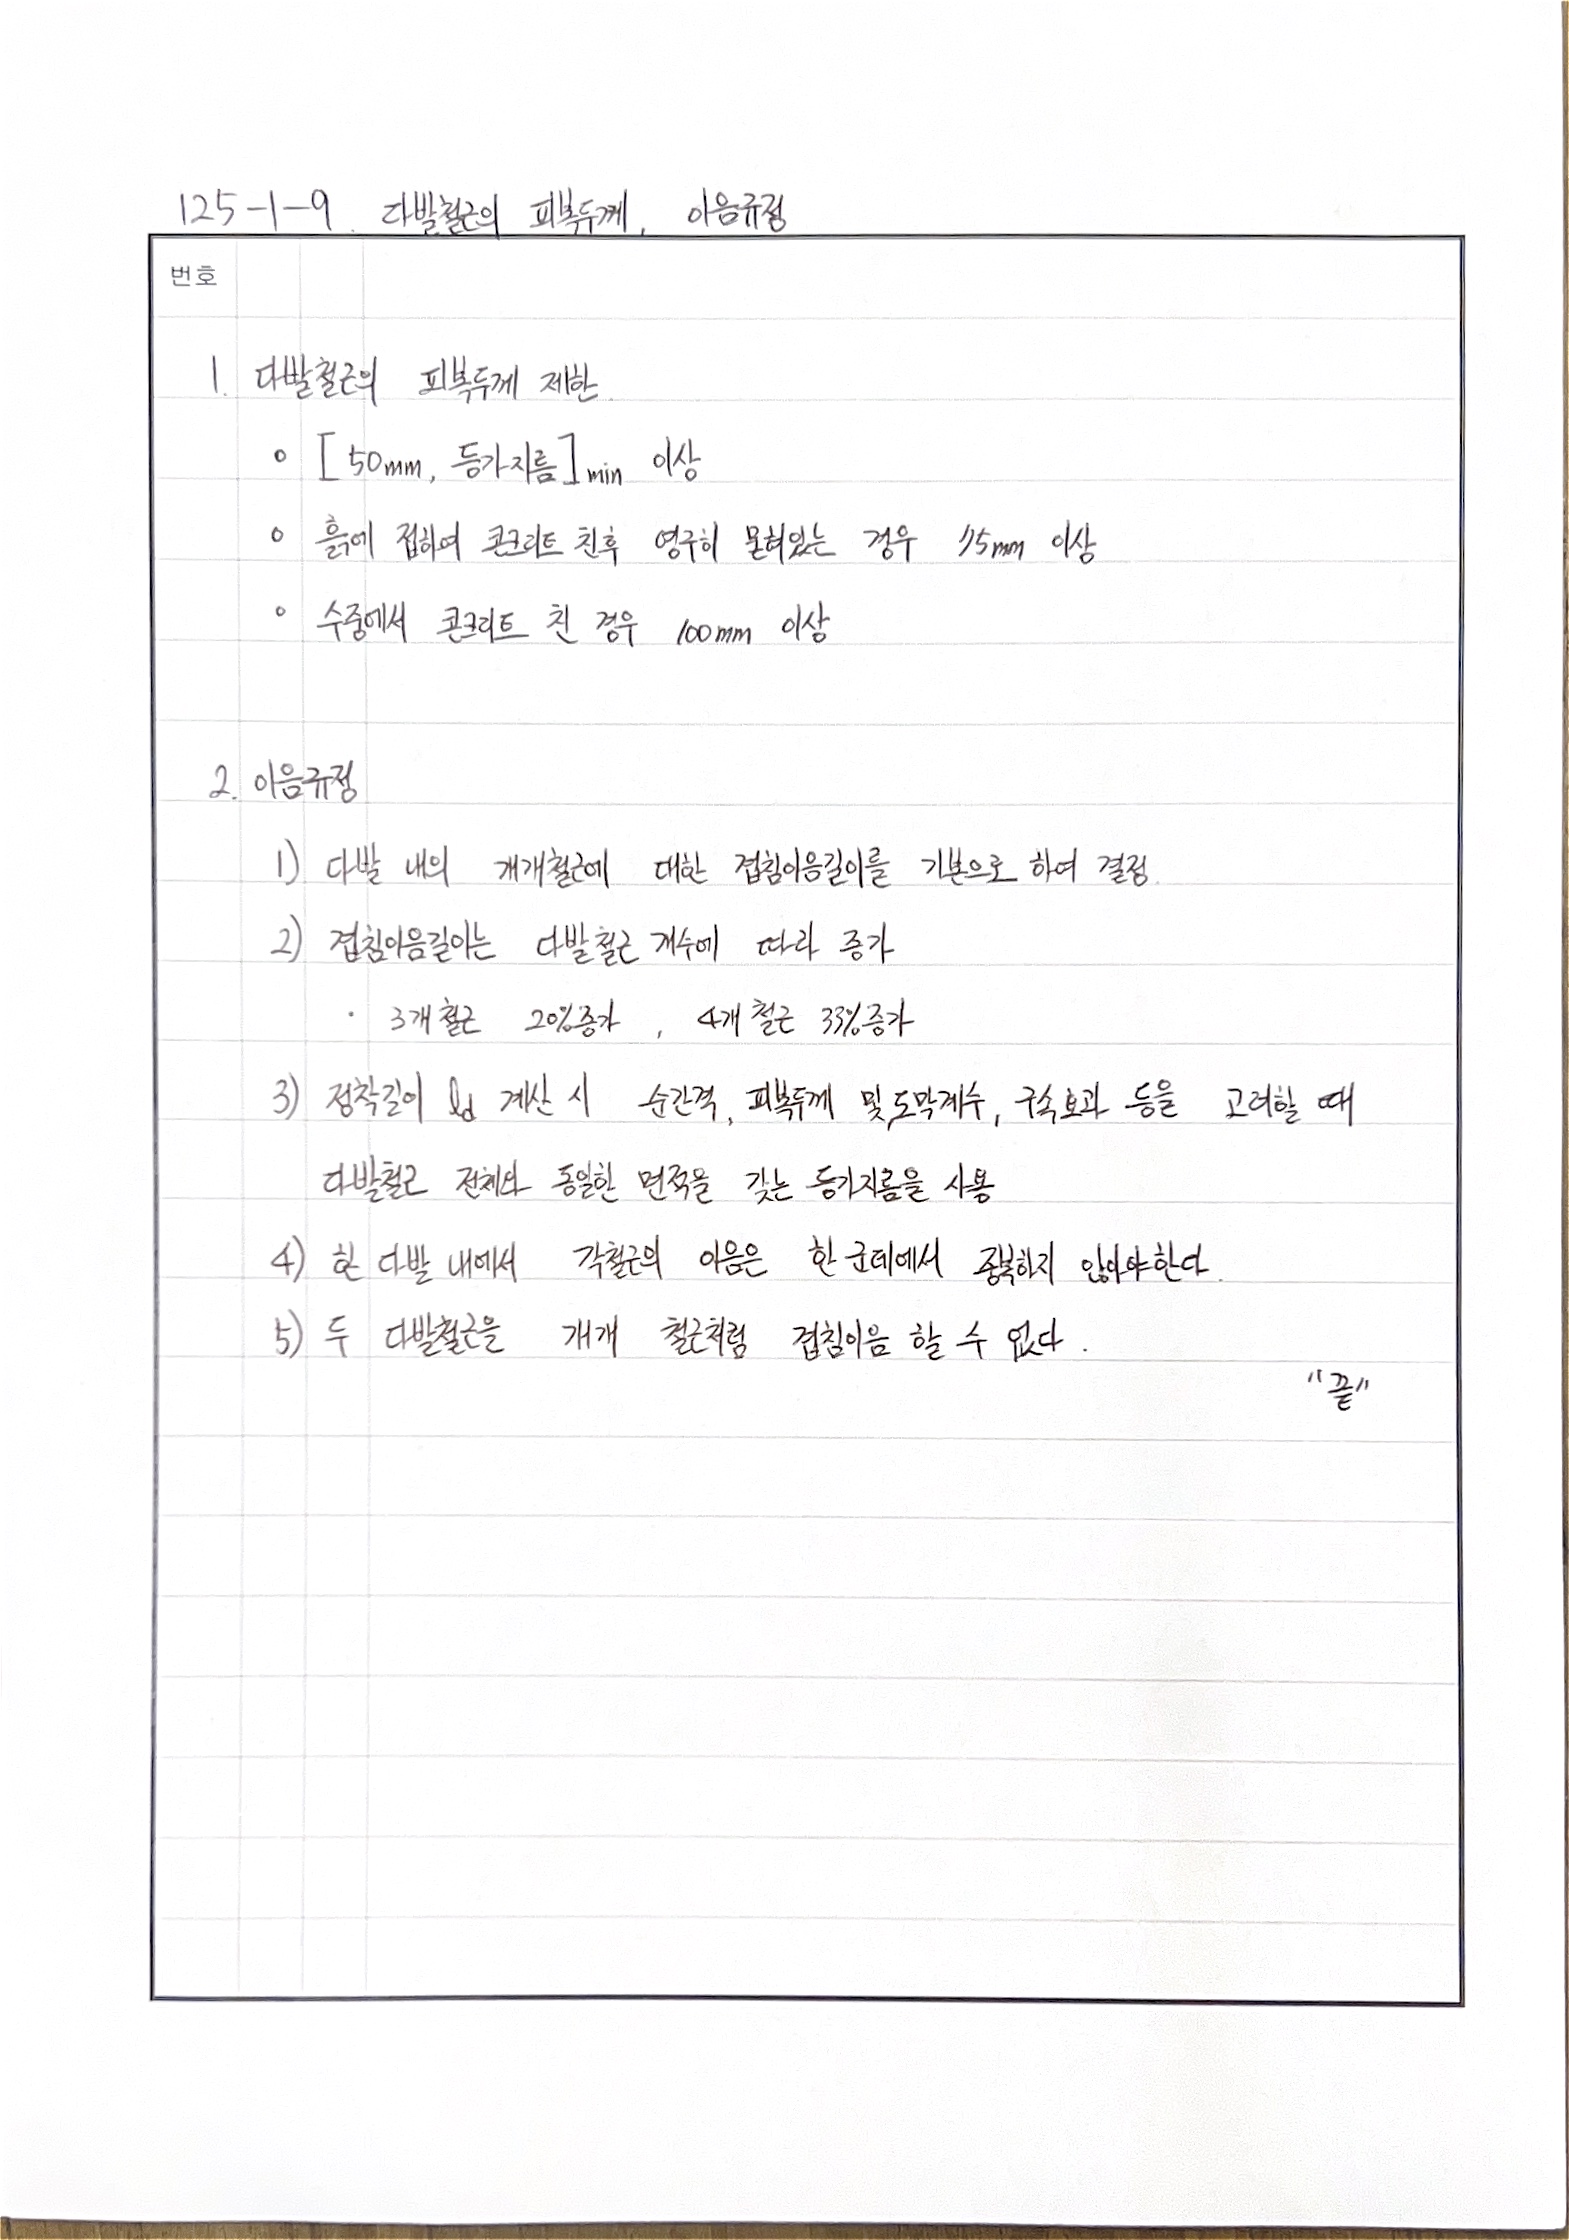 125-1-9. 다발철근의 피복두께, 이음규정
번호
1. 다발철근의 피복두께 제한.
○ [50mm, 등가지름]min 이상
○ 흙에 접하여 콘크리트 친후 영구히 묻혀있는 경우 75mm 이상
○ 수중에서 콘크리트 친 경우 100mm 이상
2. 이음규정
1) 다발 내의 개개철근에 대한 겹침이음길이를 기본으로 하여 결정.
2) 겹침이음길이는 다발철근 개수에 따라 증가
· 3개 철근 20%증가, 4개 철근 33%증가
3) 정착길이 ld 계산 시 순간격, 피복두께 및 도막계수, 구속효과 등을 고려할 때
다발철근 전체와 동일한 면적을 갖는 등가지름을 사용
4) 한 다발 내에서 각철근의 이음은 한 군데에서 중복하지 않아야한다.
5) 두 다발철근을 개개 철근처럼 겹침이음 할 수 없다.
"끝"